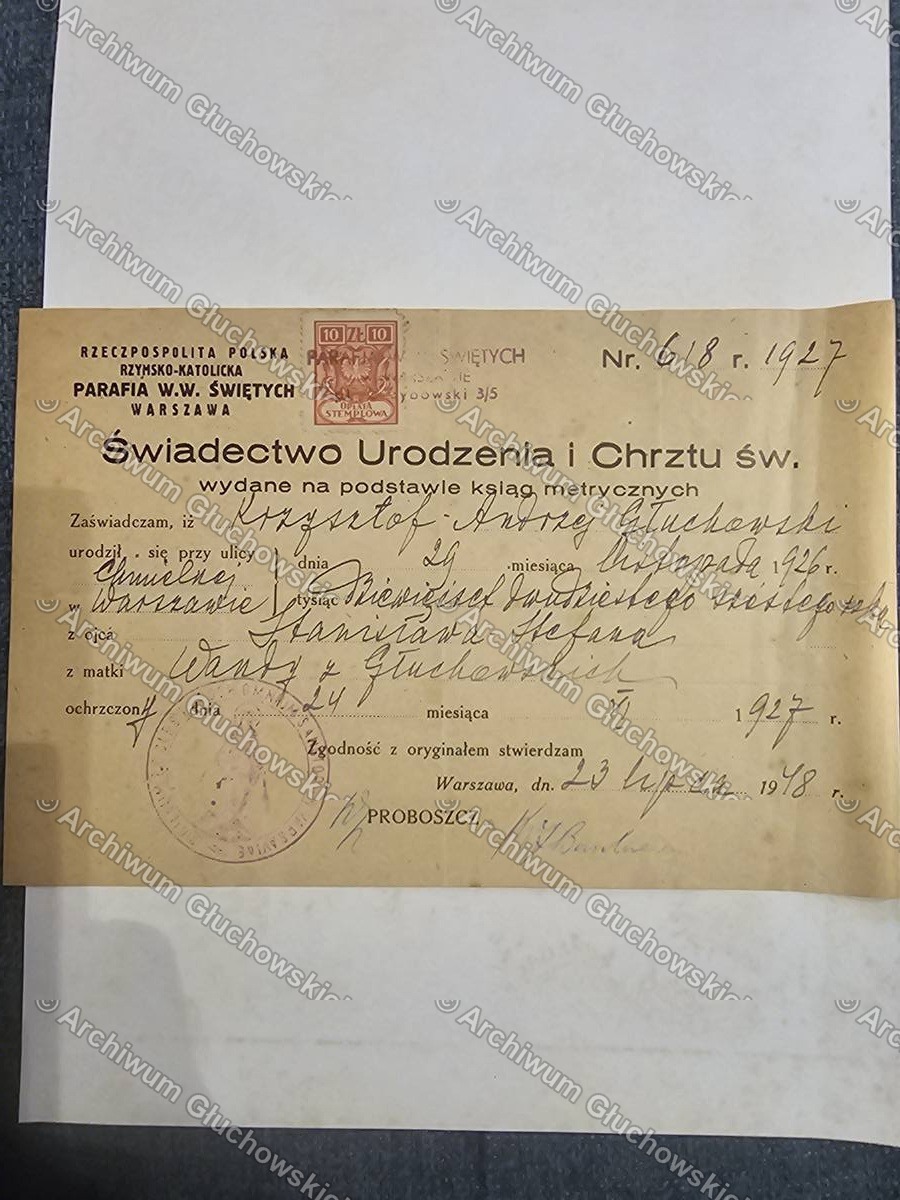 RZECZPOSPOLITA POLSKA
RZYMSKO-KATOLICKA
PARAFIA W.W. ŚWIĘTYCH
WARSZAWA
10 ZŁ 10
OPŁATA
STEMPLOWA
ŚWIĘTYCH
3/5
Nr. 618 r. 1927
Świadectwo Urodzenia i Chrztu św.
wydane na podstawie ksiąg metrycznych
Zaświadczam, iż Krzysztof-Andrzej Głuchowski
urodził się przy ulicy Chmielnej dnia 29 miesiąca listopada 1926 r.
w Warszawie tysiąc Dziewięćset dwudziestego szóstego
z ojca Stanisława Stefana
z matki Wandy z Głuchowskich
ochrzczony dnia 24 miesiąca VI 1927 r.
Zgodność z oryginałem stwierdzam
Warszawa, dn. 23 lipca 1948 r.
PROBOSZCZ
© Archiwum Głuchowskich